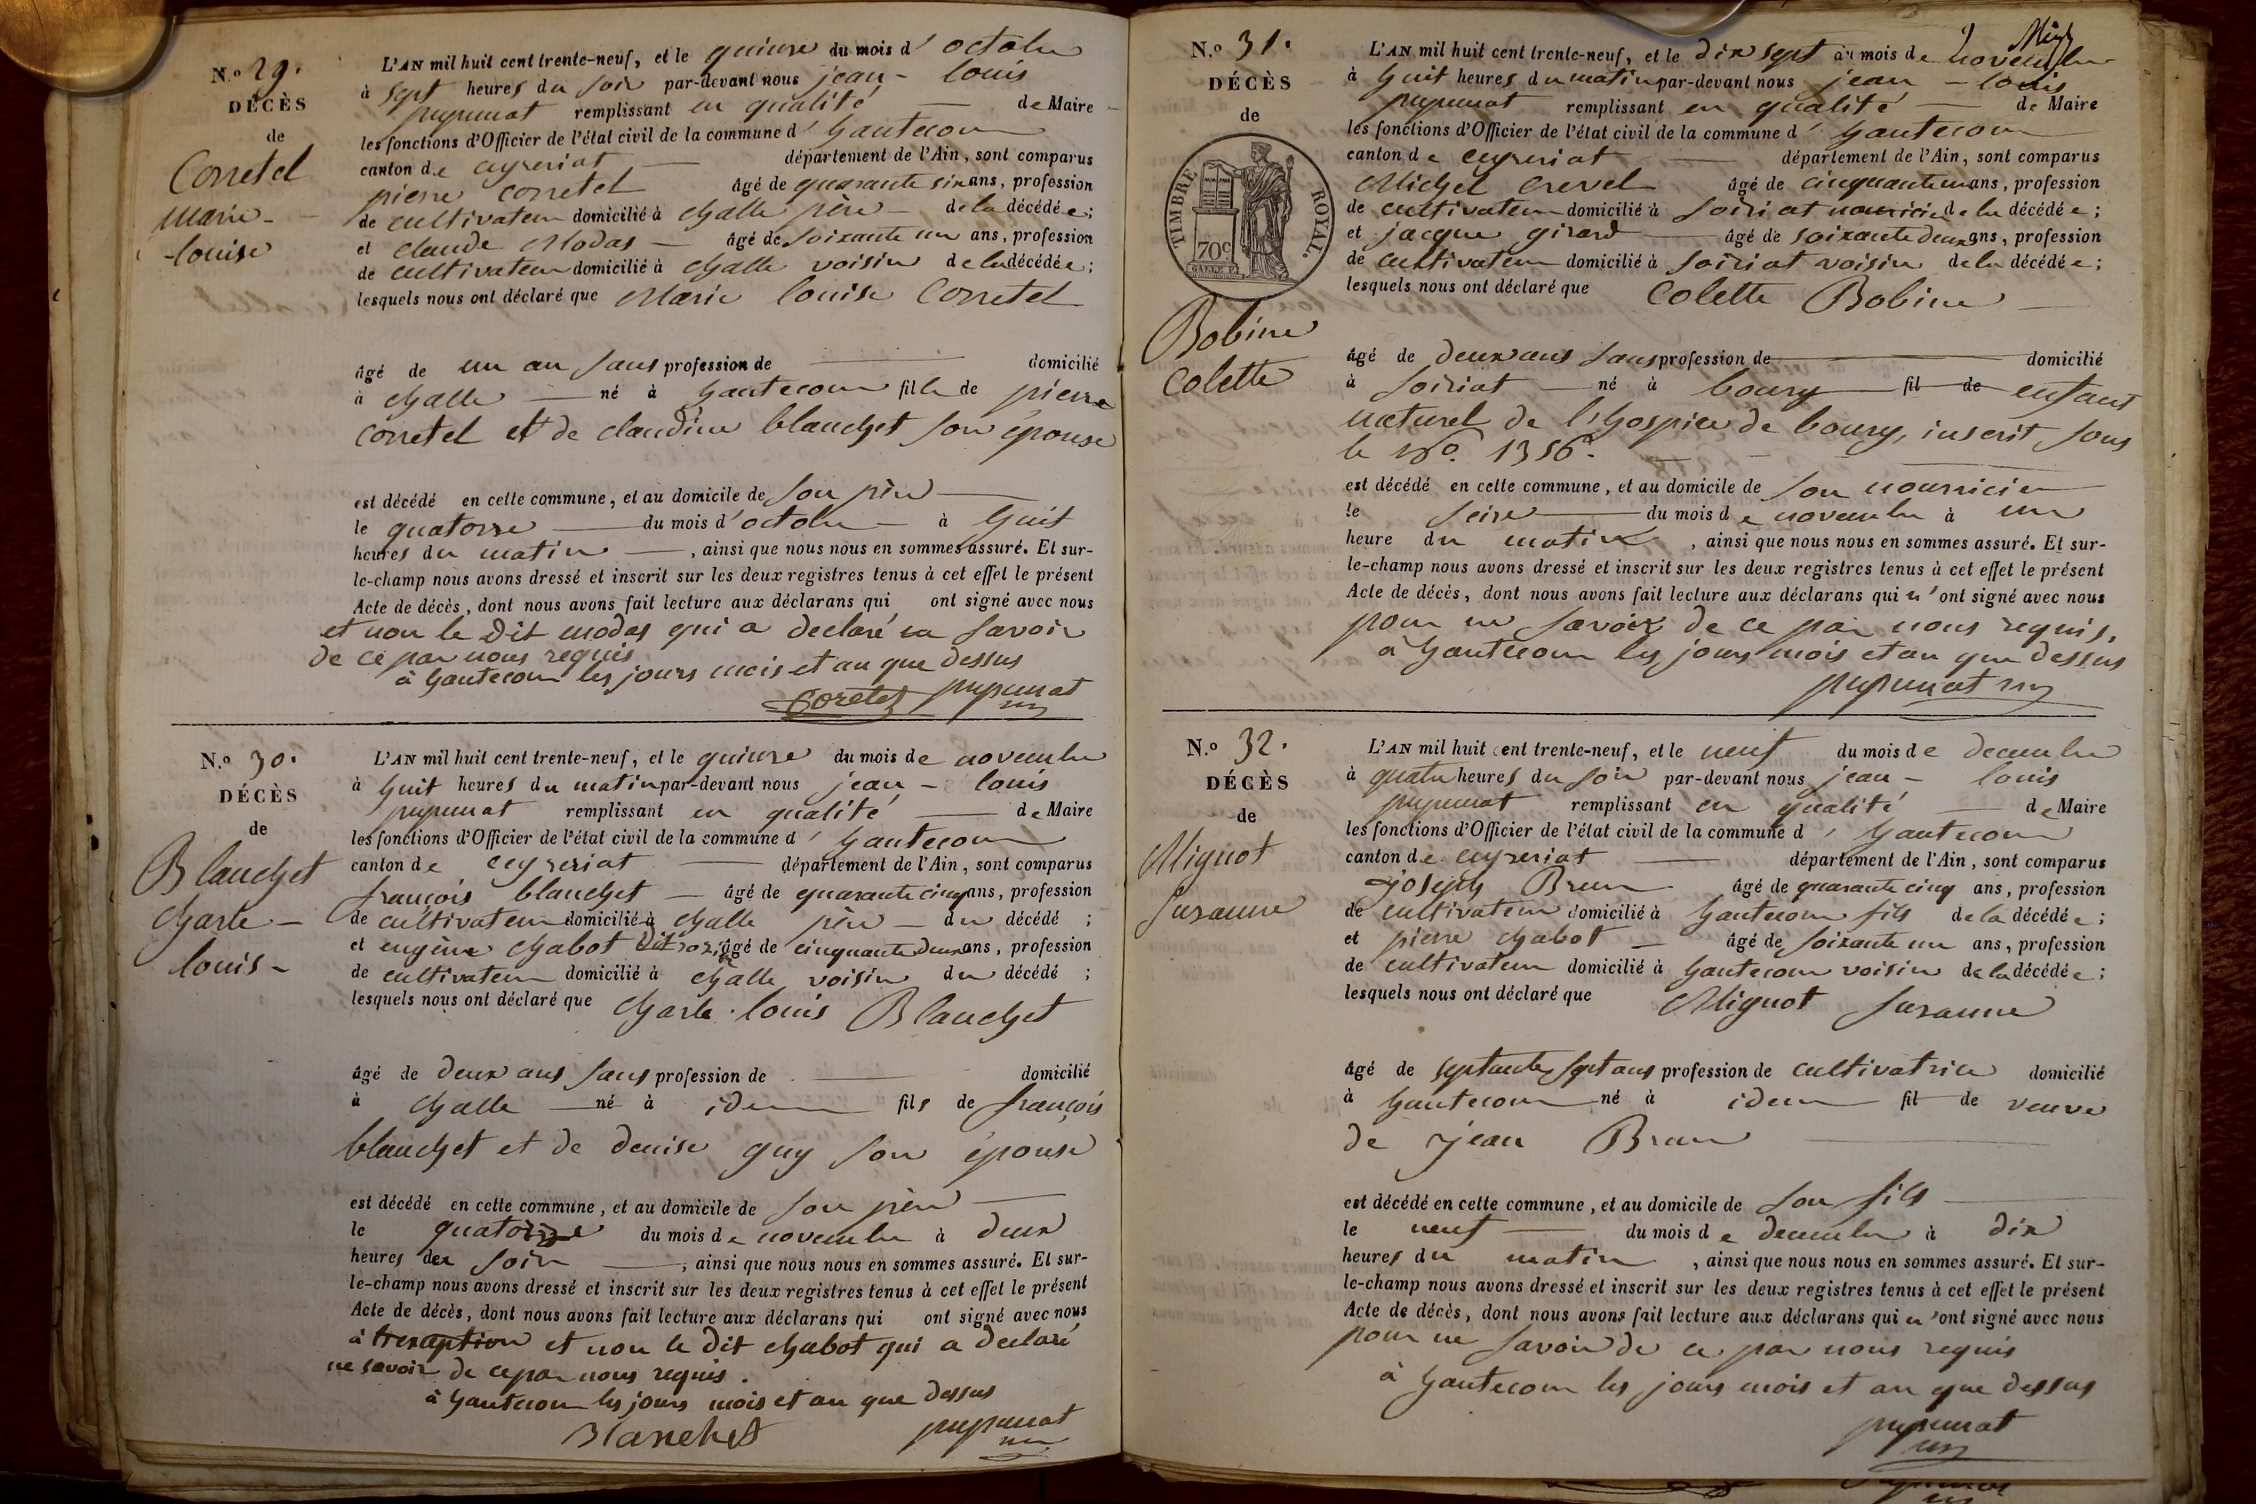 N.º 29.
DÉCÈS
de
Corretel
marie-
-louise
L'AN mil huit cent trente-neuf, et le quinze du mois d'octobre
à sept heures du soir par-devant nous jean - louis
pupunat remplissant en qualité de Maire
les fonctions d'Officier de l'état civil de la commune d'hautecour
canton de ceyzeriat département de l'Ain, sont comparus
pierre corretel âgé de quarante six ans, profession
de cultivateur domicilié à challe père de la décédée;
et claude Modas âgé de soixante un ans, profession
de cultivateur domicilié à challe voisin de la décédée;
lesquels nous ont déclaré que Marie louise Corretel
âgé de un an sans profession de domicilié
à challe né à hautecour fille de pierre
corretel et de claudine blanchet son épouse
est décédé en cette commune, et au domicile de son père
le quatorze du mois d'octobre à huit
heures du matin, ainsi que nous nous en sommes assuré. Et sur-
le-champ nous avons dressé et inscrit sur les deux registres tenus à cet effet le présent
Acte de décès, dont nous avons fait lecture aux déclarans qui ont signé avec nous
et non le dit modas qui a declaré ne savoir
de ce par nous requis
à hautecour les jours mois et an que dessus
Coretel pupunat
N.º 30.
DÉCÈS
de
Blanchet
charle -
louis -
L'AN mil huit cent trente-neuf, et le quinze du mois de novembre
à huit heures du matin par-devant nous jean - louis
pupunat remplissant en qualité de Maire
les fonctions d'Officier de l'état civil de la commune d'hautecour
canton de ceyzeriat département de l'Ain, sont comparus
françois blanchet âgé de quarante cinq ans, profession
de cultivateur domicilié à challe père du décédé ;
et eugène chabot dit âgé de cinquante deux ans, profession
de cultivateur domicilié à challe voisin du décédé ;
lesquels nous ont déclaré que charle louis Blanchet
âgé de deux ans sans profession de domicilié
à challe né à idem fils de françois
blanchet et de denise guy son épouse
est décédé en cette commune, et au domicile de son père
le quatorze du mois de novembre à deux
heures du soir, ainsi que nous nous en sommes assuré. Et sur-
le-champ nous avons dressé et inscrit sur les deux registres tenus à cet effet le présent
Acte de décès, dont nous avons fait lecture aux déclarans qui ont signé avec nous
à et non le dit chabot qui a declaré
ne savoir de ce par nous requis.
à hautecour les jours mois et an que dessus
Blanchet pupunat
N.º 31.
DÉCÈS
de
TIMBRE ROYAL.
70c
Bobine
colette
L'AN mil huit cent trente-neuf, et le dix sept du mois de novembre
à huit heures du matin par-devant nous jean - louis
pupunat remplissant en qualité de Maire
les fonctions d'Officier de l'état civil de la commune d'hautecour
canton de ceyzeriat département de l'Ain, sont comparus
Michel crevel âgé de cinquante un ans, profession
de cultivateur domicilié à soiriat nourricier de la décédée;
et jacque girard âgé de soixante deux ans, profession
de cultivateur domicilié à soiriat voisin de la décédée;
lesquels nous ont déclaré que Colette Bobine
âgé de deux ans sans profession de domicilié
à soiriat né à bourg fil de enfant
naturel de l'hospice de bourg, inscrit sous
le No. 1356.
est décédé en cette commune, et au domicile de son nourricier
le seize du mois de novembre à une
heure du matin, ainsi que nous nous en sommes assuré. Et sur-
le-champ nous avons dressé et inscrit sur les deux registres tenus à cet effet le présent
Acte de décès, dont nous avons fait lecture aux déclarans qui n'ont signé avec nous
pour ne savoir de ce par nous requis.
à hautecour les jours mois et an que dessus
pupunat
N.º 32.
DÉCÈS
de
Mignot
suzanne
L'AN mil huit cent trente-neuf, et le neuf du mois de decembre
à quatre heures du soir par-devant nous jean - louis
pupunat remplissant en qualité de Maire
les fonctions d'Officier de l'état civil de la commune d'hautecour
canton de ceyzeriat département de l'Ain, sont comparus
joseph Brun âgé de quarante cinq ans, profession
de cultivateur domicilié à hautecour fils de la décédée;
et pierre chabot âgé de soixante un ans, profession
de cultivateur domicilié à hautecour voisin de la décédée;
lesquels nous ont déclaré que Mignot suzanne
âgé de septante sept ans profession de cultivatrice domicilié
à hautecour né à idem fil de veuve
de jean Brun
est décédé en cette commune, et au domicile de son fils
le neuf du mois de decembre à dix
heures du matin, ainsi que nous nous en sommes assuré. Et sur-
le-champ nous avons dressé et inscrit sur les deux registres tenus à cet effet le présent
Acte de décès, dont nous avons fait lecture aux déclarans qui n'ont signé avec nous
pour ne savoir de ce par nous requis
à hautecour les jours mois et an que dessus
pupunat